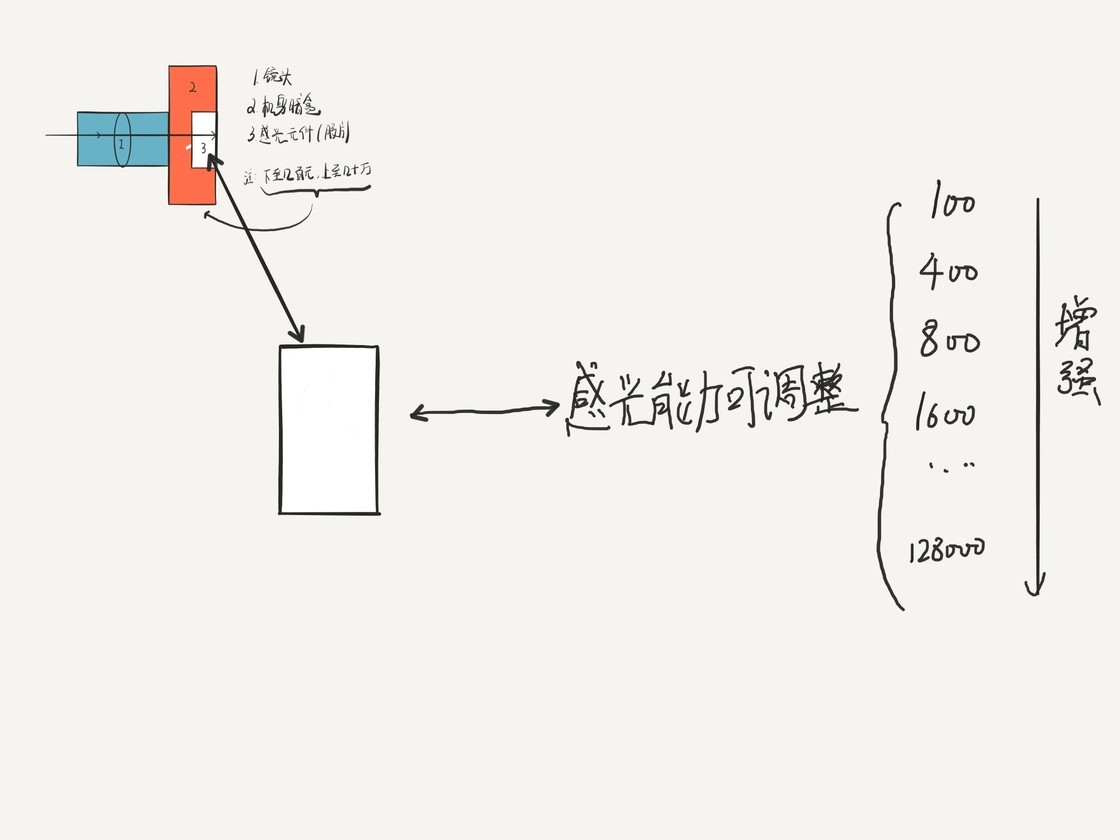 2
1
3
1.镜头
2.机身暗盒
3.感光元件(胶片)
注:下至几百元,上至几十万
感光能力可调整
100
400
800
1600
....
128000
增
强